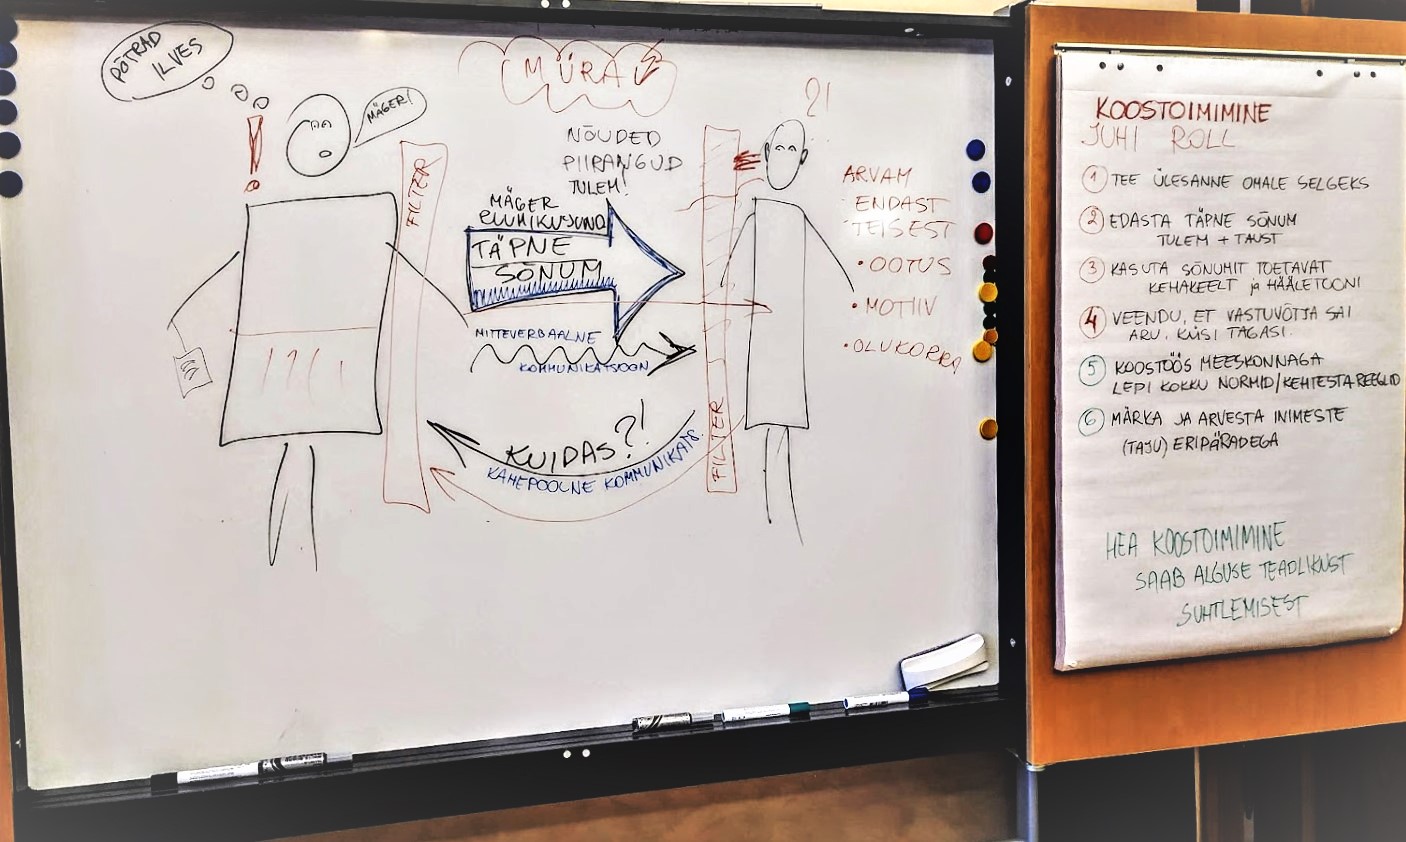 PÕTRAD
ILVES
MÄGER!
MÜRA
?!
NÕUDED
PIIRANGUD
TULEM!
FILTER
MÄGER
RUUMIKUJUND
TÄPNE
SÕNUM
MITTEVERBAALNE
KOMMUNIKATSOON
KUIDAS?!
KAHEPOOLNE KOMMUNIKATS.
FILTER
ARVAM
ENDAST
TEISEST
• OOTUS
• MOTIIV
• OLUKORRA
KOOSTOIMIMINE
JUHI ROLL
1 TEE ÜLESANNE OMALE SELGEKS
2 EDASTA TÄPNE SÕNUM
TULEM + TAUST
3 KASUTA SÕNUMIT TOETAVAT
KEHAKEELT ja HÄÄLETOONI
4 VEENDU, ET VASTUVÕTJA SAI
ARU. KÜSI TAGASI.
5 KOOSTÖÖS MEESKONNAGA
LEPI KOKKU NORMID/KEHTESTA REEGLID
6 MÄRKA JA ARVESTA INIMESTE
(TAJU) ERIPÄRADEGA
HEA KOOSTOIMIMINE
SAAB ALGUSE TEADLIKUST
SUHTLEMISEST